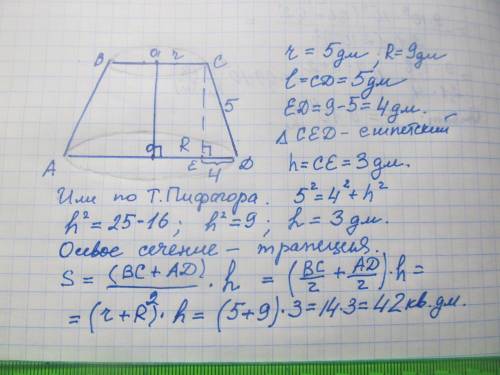 B
O
r
C
5
A
O
R
E
D
4
r = 5дм, R=9дм
l=CD=5дм
ED=9-5=4дм.
△CED-египетский
h=CE=3дм.
Или по Т.Пифагора. 5²=4²+h²
h²=25-16; h²=9; h=3дм.
Осевое сечение - трапеция.
S = (BC+AD)/2 · h = (BC/2 + AD/2)·h =
= (r+R)·h = (5+9)·3=14·3=42кв.дм.